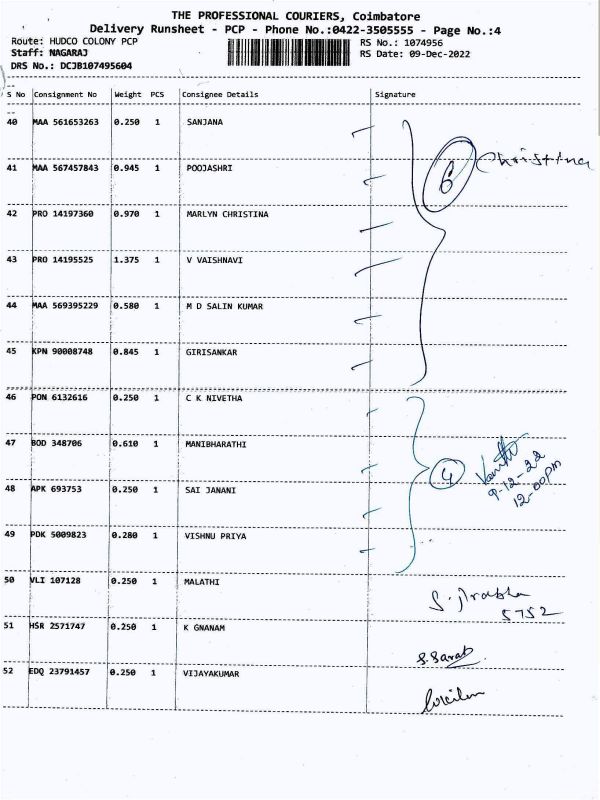 THE PROFESSIONAL COURIERS, Coimbatore
Delivery Runsheet - PCP - Phone No.:0422-3505555 - Page No.:4
Route: HUDCO COLONY PCP
RS No.: 1074956
Staff: NAGARAJ
RS Date: 09-Dec-2022
DRS No.: DCJB107495604
S No Consignment No Weight PCS Consignee Details Signature
40 MAA 561653263 0.250 1 SANJANA
6 Christina
41 MAA 567457843 0.945 1 POOJASHRI
42 PRO 14197360 0.970 1 MARLYN CHRISTINA
43 PRO 14195525 1.375 1 V VAISHNAVI
44 MAA 569395229 0.580 1 M D SALIN KUMAR
45 KPN 90008748 0.845 1 GIRISANKAR
46 PON 6132616 0.250 1 C K NIVETHA
47 BOD 348706 0.610 1 MANIBHARATHI
4
9-12-22
12-00pm
48 APK 693753 0.250 1 SAI JANANI
49 PDK 5009823 0.280 1 VISHNU PRIYA
50 VLI 107128 0.250 1 MALATHI
S. Prabha
5752
51 HSR 2571747 0.250 1 K GNANAM
S. Sarab
52 EDQ 23791457 0.250 1 VIJAYAKUMAR